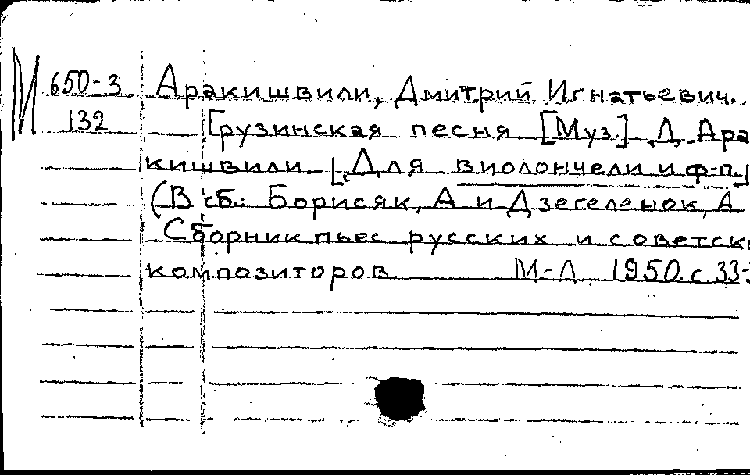 М 650-3 Аракишвили, Дмитрий Игнатьевич.
132 Грузинская песня [Муз.] Д. Ара
кишвили. [Для виолончели и ф-п.]
(В сб.: Борисяк, А и Дзегеленок, А
Сборник пьес русских и советск
композиторов М-Л 1950. с 33-